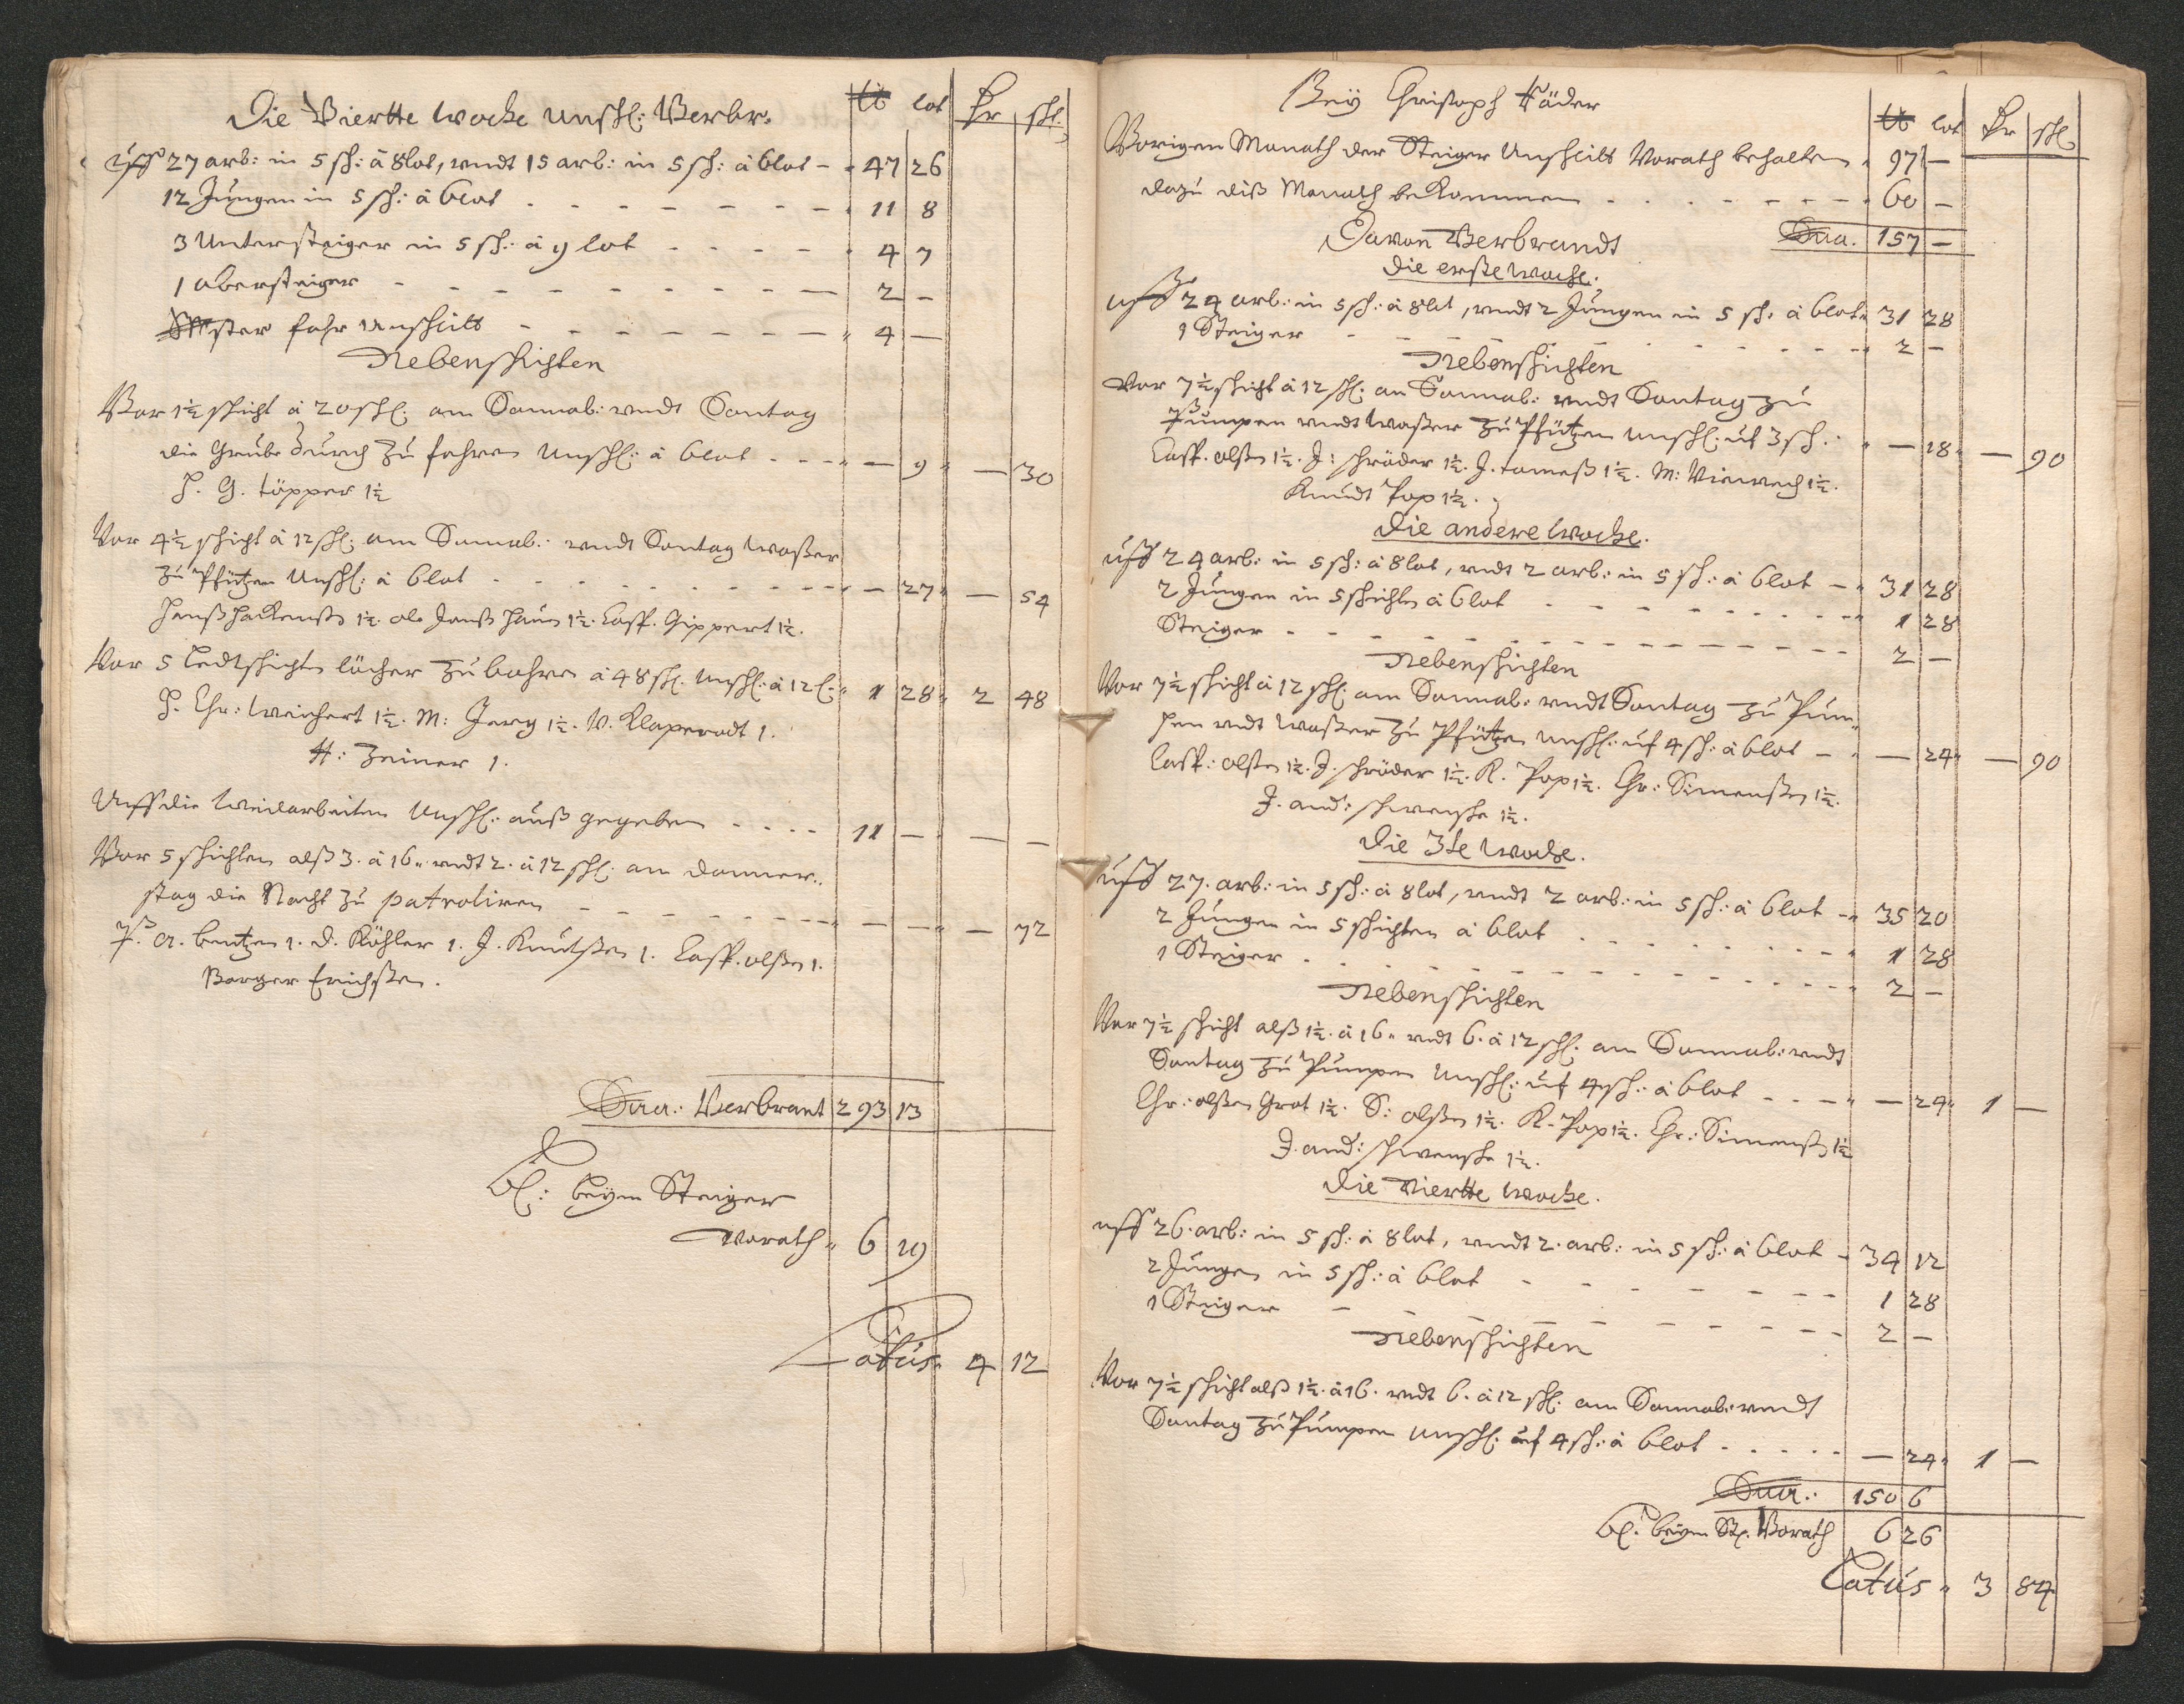 Die Viertte woche Unschl: Verbr. ℔ lot Hr schl
uff 27 arb: in 5 sch: à 8 lot, undt 15 arb: in 5 sch: à 6 lot - 47 26
12 Jungen in 5 sch: à 6 lot - 11 8
3 Untersteiger in 5 sch: à 9 lot - 4 7
1 obersteiger - 2 -
fahr Unschlitt - 4 -
Nebenschichten
Vor 1½ schicht à 20 schl: am Sonnab: undt Sontag
die Grube durch zu fahren Unschl: à 6 lot - - 9 - 30
H. G. töpper 1½
Vor 4½ schicht à 12 schl: am Sonnab: undt Sontag Waßer
zu Pfützen Unschl: à 6 lot - - 27 - 54
1½. ole Janß 1½. Casp. Gippert 1½.
Vor 5 ledtschichten löcher zu bohren à 48 schl: Unschl: à 12 l: 1 28 2 48
H. Chr: Weichert 1½. M: Jerg 1½. V. Klaperodt 1.
H: Zeiner 1.
Uff die Weilarbeiten Unschl: auß gegeben - 11 - - -
Vor 5 schichten alß 3. à 16. undt 2. à 12 schl: am donner-
stag die Nacht zu patroliren - - - - 72
P. A. bentzen 1. D. Köhler 1. J. Knutßen 1. Casp. olßen 1.
Borger Erichßen.
Sua: Verbrant 293 13
bl: beym Steiger
Vorath 6 19
Latus 4 12
Bey Christoph Häder
℔ lot Hr schl
Vorigen Monath der Steiger Unschlitt Vorath behalten 97 -
dazu diß Monath bekommen - 60 -
Sua. 157 -
Davon Verbrandt
die erste Woche.
uff 24 arb: in 5 sch: à 8 lot, undt 2 Jungen in 5 sch: à 6 lot 31 28
1 Steiger - 2 -
Nebenschichten
Vor 7½ schicht à 12 schl: am Sonnab: undt Sontag zu
Pumpen undt Waßer zu Pfützen Unschl: uf 3 sch: - 18 - 90
Casp. olßen 1½. J: schröder 1½. J. tomeß 1½. M: 1½.
Knudt Pop 1½.
Die andere woche.
uff 24 arb: in 5 sch: à 8 lot, undt 2 arb: in 5 sch: à 6 lot - 31 28
2 Jungen in 5 schichten à 6 lot - 1 28
Steiger - 2 -
Nebenschichten
Vor 7½ schicht à 12 schl: am Sonnab: undt Sontag zu Pum-
pen undt Waßer zu Pfützen Unschl: uf 4 sch: à 6 lot - - 24 - 90
Casp: olßen 1½. J. schröder 1½. K. Pop 1½. Chr: Simenßen 1½.
J. and: schwenßke 1½.
Die 3te Woche.
uff 27. arb: in 5 sch: à 8 lot, undt 2 arb: in 5 sch: à 6 lot - 35 20
2 Jungen in 5 schichten à 6 lot - 1 28
1 Steiger - 2 -
Nebenschichten
Vor 7½ schicht alß 1½. à 16. undt 6. à 12 schl: am Sonnab: undt
Sontag zu Pumpen Unschl: uf 4 sch: à 6 lot - - 24 1 -
Chr: olßen Grot 1½. S: olßen 1½. K. Pop 1½. Chr: Simenßen 1½
J. and: schwenßke 1½.
Die Viertte Woche.
uff 26. arb: in 5 sch: à 8 lot, undt 2. arb: in 5 sch: à 6 lot - 34 12
2 Jungen in 5 sch: à 6 lot - 1 28
1 Steiger - 2 -
Nebenschichten
Vor 7½ schicht alß 1½. à 16. undt 6. à 12 schl: am Sonnab: undt
Sontag zu Pumpen Unschl: uf 4 sch: à 6 lot - - 24 1 -
Sua: 150 6
bl: beym St: Vorath 6 26
Latus 3 84